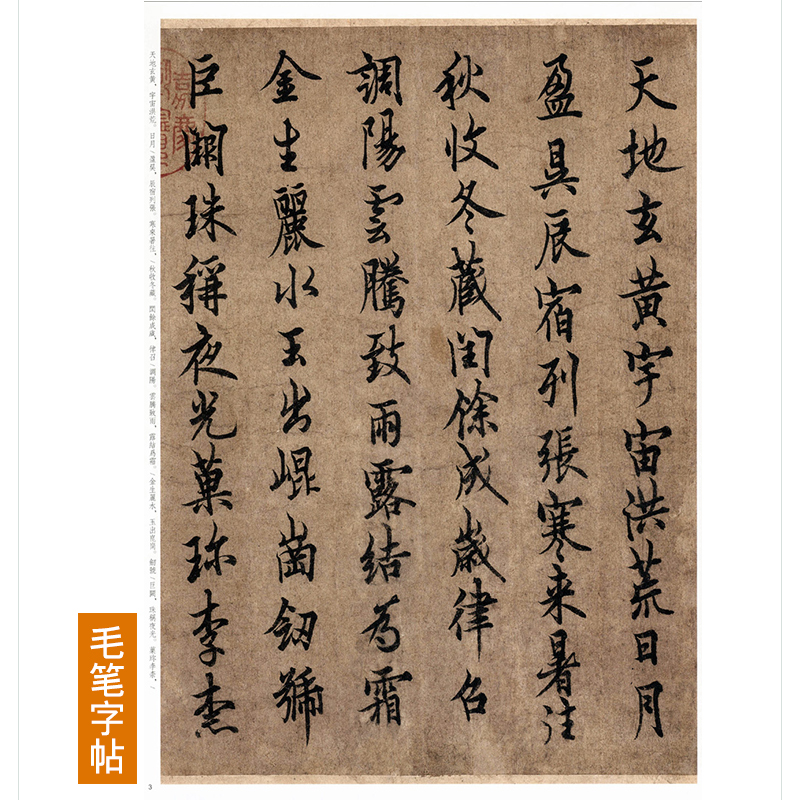 天地玄黃宇宙洪荒日月
盈昃辰宿列張寒来暑往
秋收冬藏閏餘成歲律召
調陽雲騰致雨露結為霜
金生麗水玉出崐崗釰號
巨闕珠稱夜光菓珍李柰
天地玄黃，宇宙洪荒。日月/盈昃，辰宿列張。寒來暑往，/秋收冬藏。閏餘成歲，律召/調陽。雲騰致雨，露結爲霜。/金生麗水，玉出崑岡。劍號/巨闕，珠稱夜光。菓珍李柰，/
毛笔字帖
3